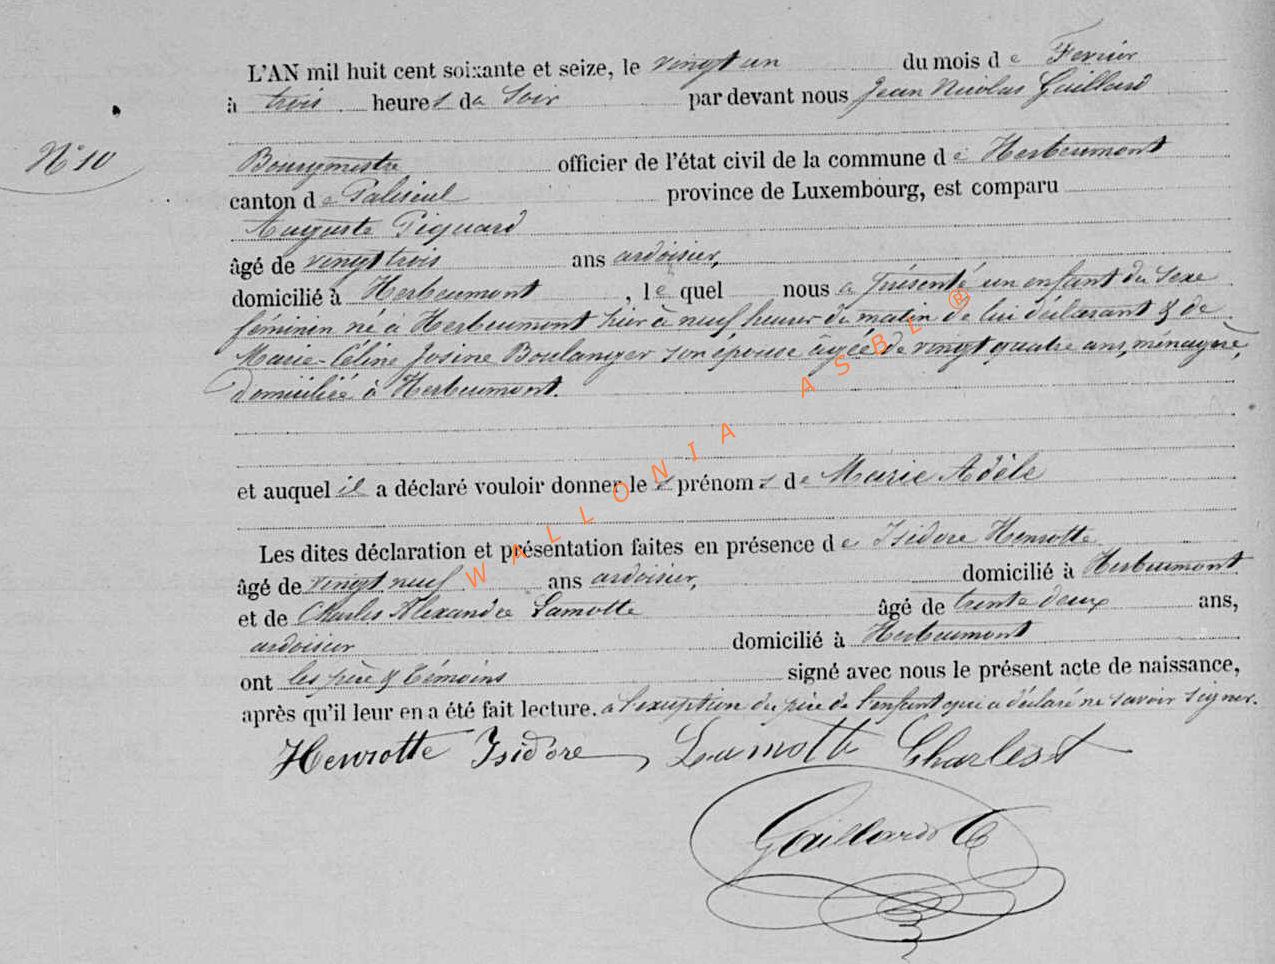 L'AN mil huit cent soixante et seize, le vingt un du mois de Fevrier
à trois heures du soir par devant nous Jean Nicolas Gaillard
N° 10
Bourgmestre officier de l'état civil de la commune de Herbeumont
canton de Paliseul province de Luxembourg, est comparu
Auguste Piquard
âgé de vingt trois ans ardoisier,
domicilié à Herbeumont, lequel nous a présenté un enfant du sexe
féminin né à Herbeumont hier à neuf heures du matin de lui déclarant & de
Marie-Céline Josine Boulanger son épouse âgée de vingt quatre ans, ménagère,
domiciliée à Herbeumont.
et auquel il a déclaré vouloir donner les prénoms de Marie Adèle
Les dites déclaration et présentation faites en présence de Isidore Henrotte
âgé de vingt neuf ans ardoisier, domicilié à Herbeumont
et de Charles Alexandre Lamotte âgé de trente deux ans,
ardoisier domicilié à Herbeumont
ont les père & témoins signé avec nous le présent acte de naissance,
après qu'il leur en a été fait lecture. à l'exception du père de l'enfant qui a déclaré ne savoir signer.
Henrotte Isidore Lamotte Charles
Gaillard
WALLONIA ASBL ®